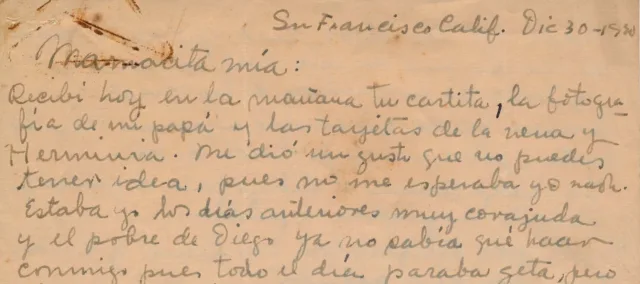 Sn Francisco Calif. Dic 30-1930
Mamacita mía:
Recibí hoy en la mañana tu cartita, la fotogra-
fía de mi papá y las tarjetas de la nena y
Herminia. Me dió un gusto que no puedes
tener idea, pues no me esperaba yo nada.
Estaba yo los días anteriores muy corajuda
y el pobre de Diego ya no sabía qué hacer
conmigo pues todo el día paraba geta, pero